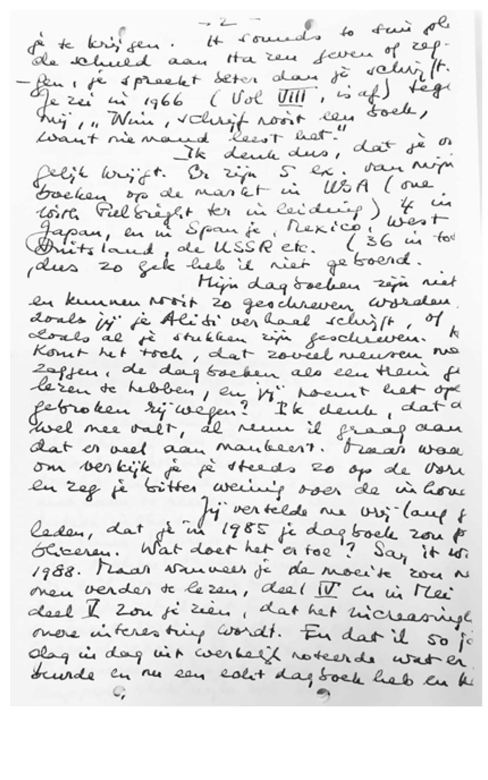 - 2 -
je te krijgen. It sounds to
de schuld aan Hazen geven of zeg-
gen, je spreekt beter dan je schrijft.
Je zei in 1966 (Vol VIII, is af) tege
mij, „Wim, schrijf nooit een boek,
want niemand leest het."
Ik denk dus, dat je o
gelijk krijgt. Er zijn 5 ex. van mijn
boeken op de markt in USA (one
with Fulbright ter inleiding) 4 in
Japan, en in Spanje, Mexico, West
Duitsland, de USSR etc. (36 in to
, dus zo gek heb ik niet geboerd.
Mijn dagboeken zijn niet
en kunnen nooit zo geschreven worden
zoals jij je Alibi verhaal schrijft, of
zoals al je stukken zijn geschreven.
Komt het toch, dat zoveel mensen me
zeggen, de dagboeken als een trein g
lezen te hebben, en jij noemt het op
gebroken rijwegen? Ik denk, dat d
wel mee valt, al neem ik graag aan
dat er veel aan mankeert. Maar waa
om verkijk je je steeds zo op de vor
en zeg je bitter weinig over de inhou
Jij vertelde me vrij lang g
leden, dat je in 1985 je dagboek zou p
bliceren. Wat doet het er toe? Say it wi
1988. Maar wanneer je de moeite zou n
men verder te lezen, deel IV en in Mei
deel V zou je zien, dat het increasingl
more interesting wordt. En dat ik 50 j
dag in dag uit werkelijk noteerde wat er
beurde en nu een echt dagboek heb en